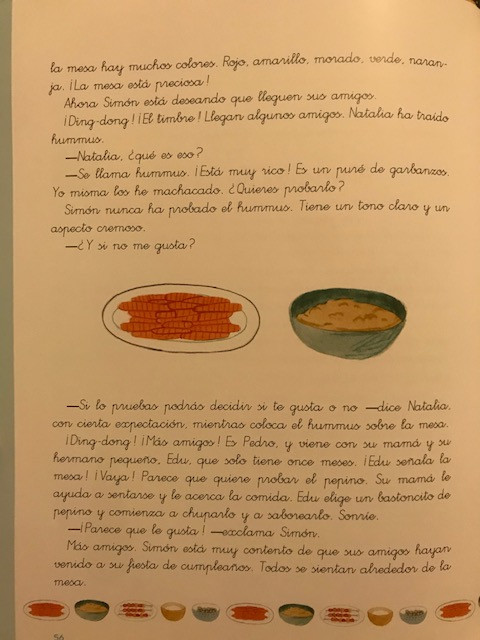 la mesa hay muchos colores. Rojo, amarillo, morado, verde, naran-
ja. ¡La mesa está preciosa!
Ahora Simón está deseando que lleguen sus amigos.
¡Ding-dong! ¡El timbre! Llegan algunos amigos. Natalia ha traído
hummus.
—Natalia, ¿qué es eso?
—Se llama hummus. ¡Está muy rico! Es un puré de garbanzos.
Yo misma los he machacado. ¿Quieres probarlo?
Simón nunca ha probado el hummus. Tiene un tono claro y un
aspecto cremoso.
—¿Y si no me gusta?
—Si lo pruebas podrás decidir si te gusta o no —dice Natalia,
con cierta expectación, mientras coloca el hummus sobre la mesa.
¡Ding-dong! ¡Más amigos! Es Pedro, y viene con su mamá y su
hermano pequeño, Edu, que solo tiene once meses. ¡Edu señala la
mesa! ¡Vaya! Parece que quiere probar el pepino. Su mamá le
ayuda a sentarse y le acerca la comida. Edu elige un bastoncito de
pepino y comienza a chuparlo y a saborearlo. Sonríe.
—¡Parece que le gusta! —exclama Simón.
Más amigos. Simón está muy contento de que sus amigos hayan
venido a su fiesta de cumpleaños. Todos se sientan alrededor de la
mesa.
56